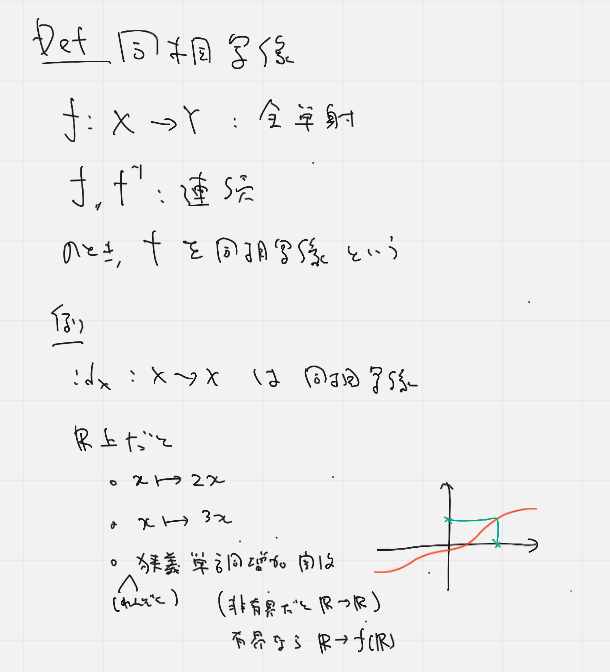 Def 同相写像
f: X → Y : 全単射
f, f⁻¹ : 連続
のとき, f を同相写像という
例)
id_X : X → X は 同相写像
ℝ上だと
◦ x ↦ 2x
◦ x ↦ 3x
◦ 狭義単調増加関数
(れんぞく) (非有界だと ℝ→ℝ)
有界なら ℝ→f(ℝ)